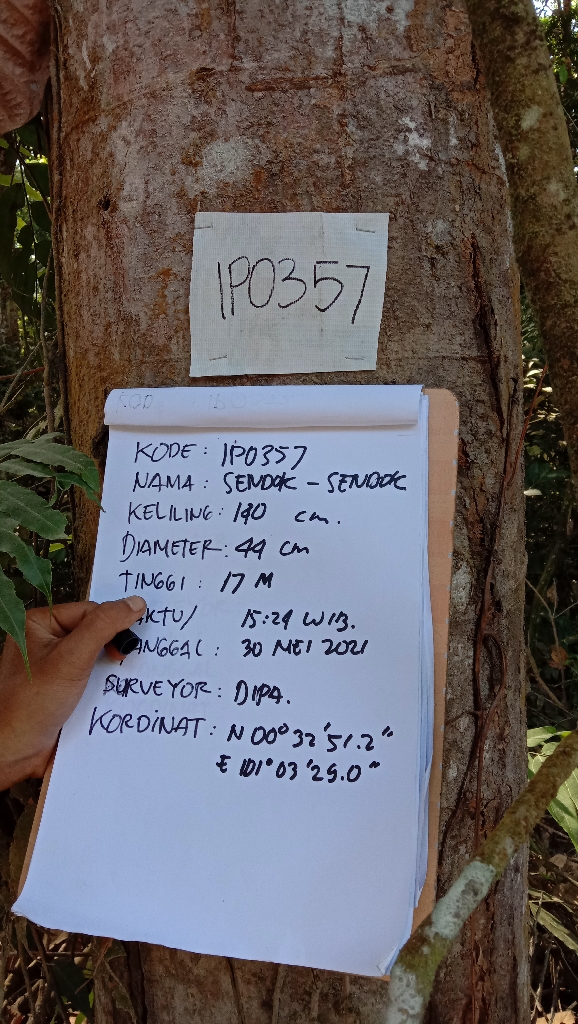 IP0357
KODE : IP0357
NAMA : SENDOK - SENDOK
KELILING : 140 cm.
DIAMETER : 44 cm
TINGGI : 17 M
AKTU/ 15:29 WIB.
ANGGAL : 30 MEI 2021
SURVEYOR : DIPA.
KORDINAT : N 00° 32' 51.2"
E 101° 03' 29.0"